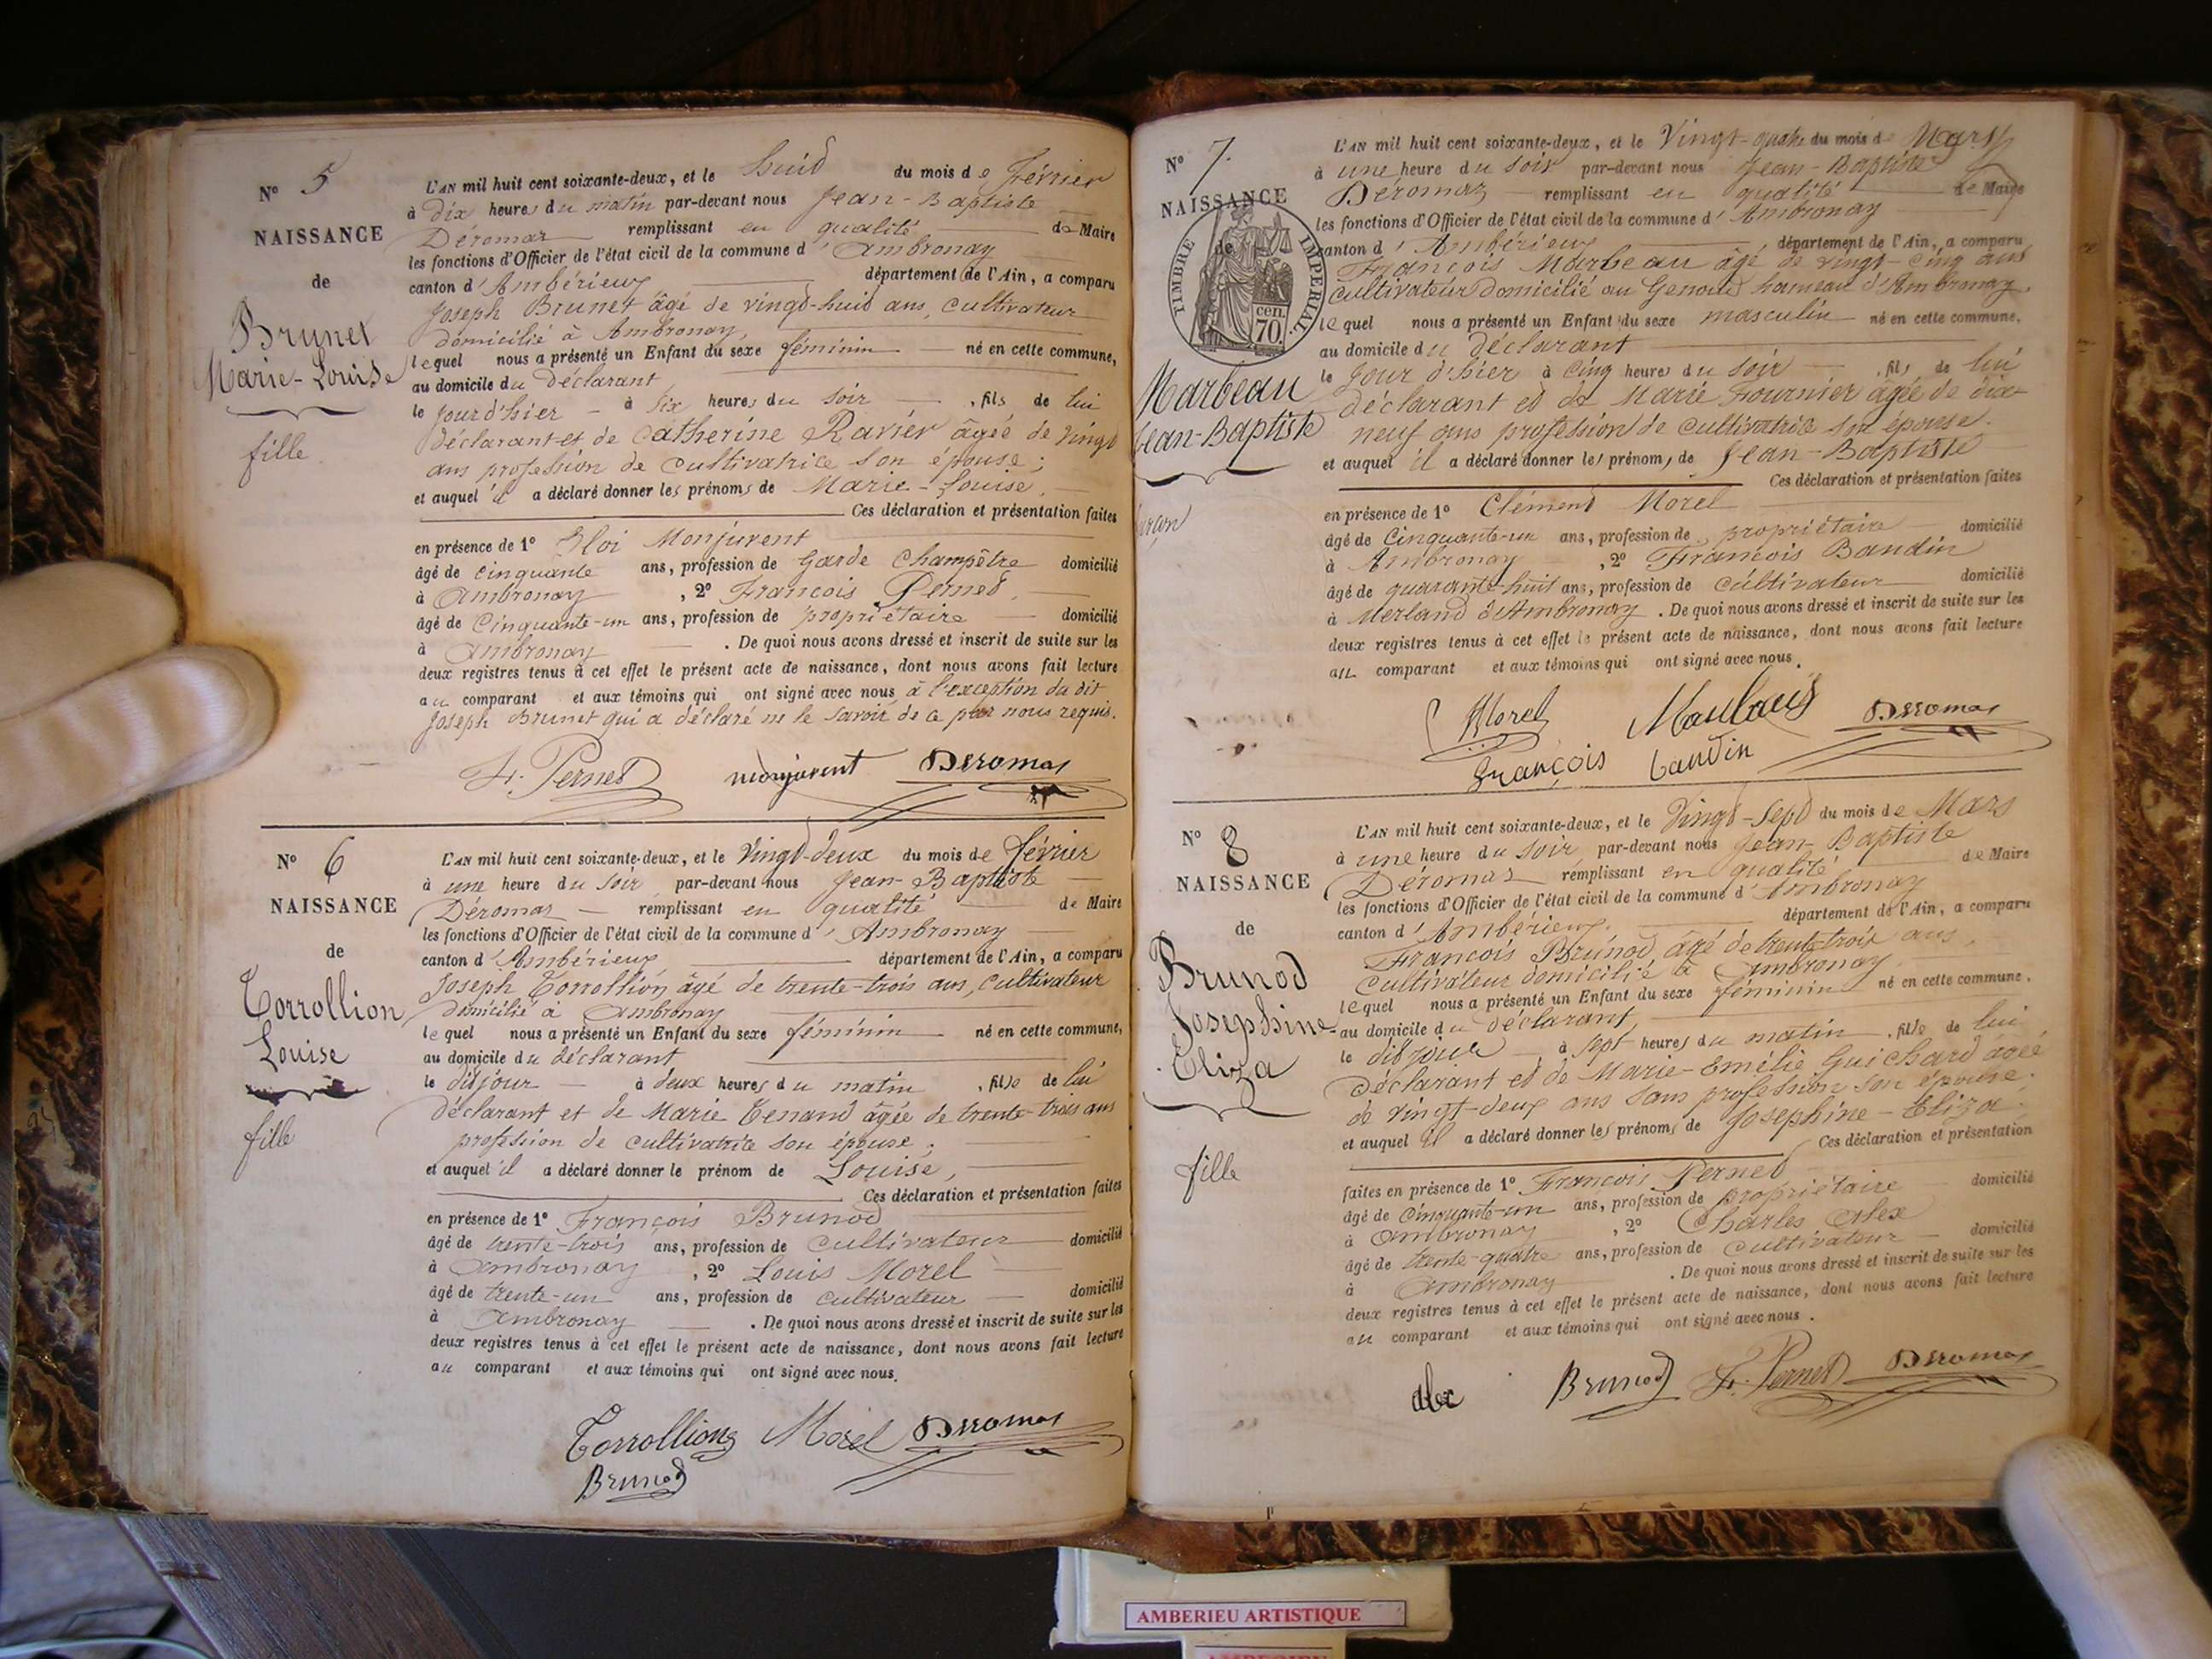 N° 5
NAISSANCE
de
Brunet
Marie-Louise
fille
L'AN mil huit cent soixante-deux, et le huit du mois de Février
à Dix heures du matin par-devant nous Jean-Baptiste
Déromas remplissant en qualité de Maire
les fonctions d'Officier de l'état civil de la commune d'Ambronay
canton d'Ambérieux département de l'Ain, a comparu
Joseph Brunet âgé de vingt-huit ans, cultivateur
domicilié à Ambronay,
lequel nous a présenté un Enfant du sexe féminin né en cette commune,
au domicile du Déclarant
le jour d'hier à six heures du soir, fils de lui
déclarant et de Catherine Ravier âgée de vingt
ans profession de cultivatrice son épouse;
et auquel il a déclaré donner les prénoms de Marie-Louise,
Ces déclaration et présentation faites
en présence de 1° Eloi Monjuvent
âgé de cinquante ans, profession de Garde Champêtre domicilié
à Ambronay, 2° François Pernet,
âgé de Cinquante-un ans, profession de propriétaire domicilié
à Ambronay. De quoi nous avons dressé et inscrit de suite sur les
deux registres tenus à cet effet le présent acte de naissance, dont nous avons fait lecture
au comparant et aux témoins qui ont signé avec nous à l'exception du dit
Joseph Brunet qui a déclaré ne le savoir de ce par nous requis.
F. Pernet monjuvent Deromas
N° 6
NAISSANCE
de
Corrollion
Louise
fille
L'AN mil huit cent soixante-deux, et le Vingt-deux du mois de février
à une heure du soir par-devant nous Jean-Baptiste
Déromas remplissant en qualité de Maire
les fonctions d'Officier de l'état civil de la commune d'Ambronay
canton d'Ambérieux département de l'Ain, a comparu
Joseph Corrollion âgé de trente-trois ans, cultivateur
domicilié à Ambronay
lequel nous a présenté un Enfant du sexe féminin né en cette commune,
au domicile du déclarant
le dit jour à deux heures du matin, fille de lui
déclarant et de Marie Tenand âgée de trente-trois ans
profession de cultivatrice son épouse;
et auquel il a déclaré donner le prénom de Louise,
Ces déclaration et présentation faites
en présence de 1° François Brunod
âgé de trente-trois ans, profession de cultivateur domicilié
à Ambronay, 2° Louis Morel
âgé de trente-un ans, profession de cultivateur domicilié
à Ambronay. De quoi nous avons dressé et inscrit de suite sur les
deux registres tenus à cet effet le présent acte de naissance, dont nous avons fait lecture
au comparant et aux témoins qui ont signé avec nous.
Corrollion Morel Deromas
Brunod
N° 7.
NAISSANCE
de
TIMBRE IMPERIAL.
70. cen.
Marbeau
Jean-Baptiste
garçon
L'AN mil huit cent soixante-deux, et le Vingt-quatre du mois de Mars
à une heure du soir par-devant nous Jean-Baptiste
Déromas remplissant en qualité de Maire
les fonctions d'Officier de l'état civil de la commune d'Ambronay
canton d'Ambérieux département de l'Ain, a comparu
François Marbeau âgé de vingt-cinq ans
cultivateur domicilié au Genoud hameau d'Ambronay,
lequel nous a présenté un Enfant du sexe masculin né en cette commune,
au domicile du déclarant
le jour d'hier à cinq heures du soir, fils de lui
déclarant et de Marie Fournier âgée de dix-
neuf ans profession de cultivatrice son épouse.
et auquel il a déclaré donner les prénoms de Jean-Baptiste
Ces déclaration et présentation faites
en présence de 1° Clément Morel
âgé de Cinquante-un ans, profession de propriétaire domicilié
à Ambronay, 2° François Baudin
âgé de quarante-huit ans, profession de cultivateur domicilié
à Merland d'Ambronay. De quoi nous avons dressé et inscrit de suite sur les
deux registres tenus à cet effet le présent acte de naissance, dont nous avons fait lecture
au comparant et aux témoins qui ont signé avec nous.
C Morel Deromas
François baudin
N° 8
NAISSANCE
de
Brunod
Josephine-
Eliza
fille
L'AN mil huit cent soixante-deux, et le Vingt-Sept du mois de Mars
à une heure du soir par-devant nous Jean-Baptiste
Déromas remplissant en qualité de Maire
les fonctions d'Officier de l'état civil de la commune d'Ambronay
canton d'Ambérieux département de l'Ain, a comparu
François Brunod, âgé de trente-trois ans,
cultivateur domicilié à Ambronay
lequel nous a présenté un Enfant du sexe féminin né en cette commune,
au domicile du déclarant,
le dit jour à sept heures du matin, fille de lui
déclarant et de Marie-Emélie Guichard âgée
de vingt-deux ans sans profession son épouse;
et auquel il a déclaré donner les prénoms de Josephine-Eliza.
Ces déclaration et présentation
faites en présence de 1° François Pernet
âgé de Cinquante-un ans, profession de propriétaire domicilié
à Ambronay, 2° Charles Alex
âgé de trente-quatre ans, profession de cultivateur domicilié
à Ambronay. De quoi nous avons dressé et inscrit de suite sur les
deux registres tenus à cet effet le présent acte de naissance, dont nous avons fait lecture
au comparant et aux témoins qui ont signé avec nous.
alex Brunod F. Pernet Deromas
AMBERIEU ARTISTIQUE